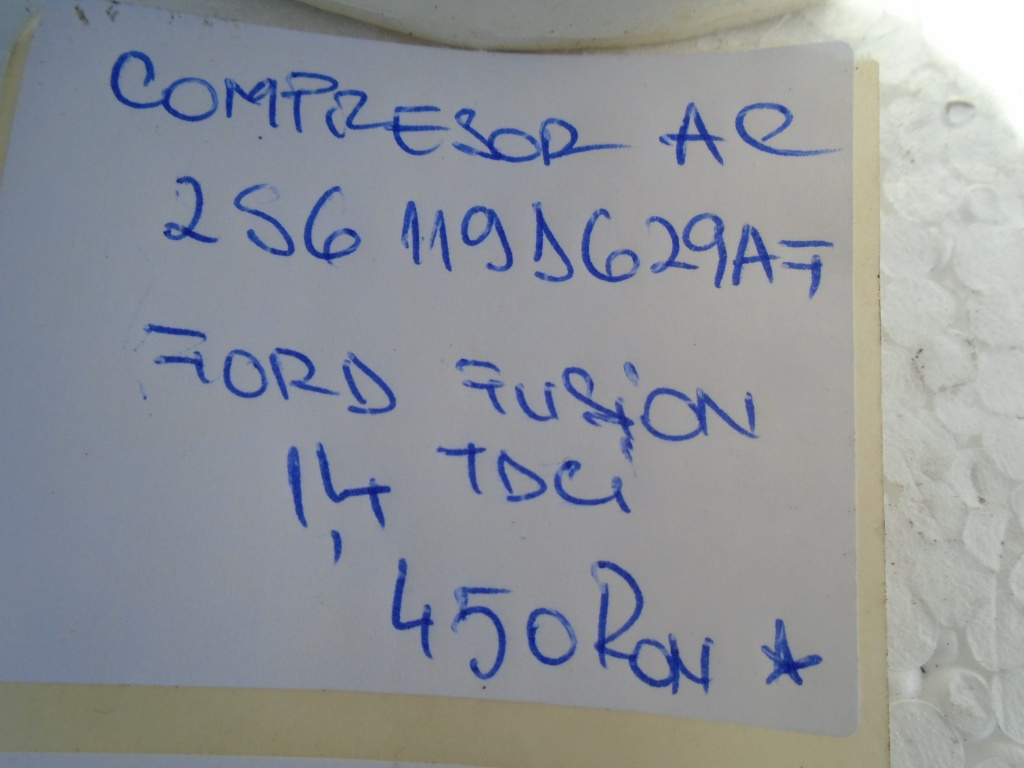 COMPRESOR AC
2S6 119D629AF
FORD FUSiON
1,4 TDCi
450 RON ★